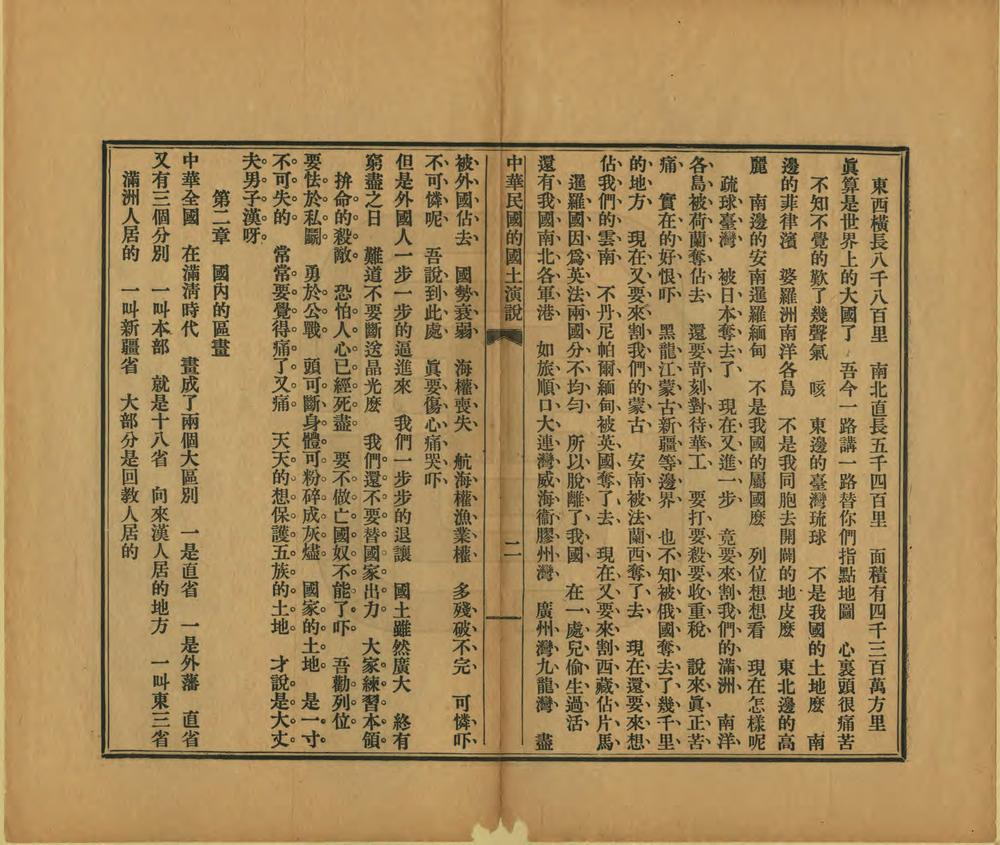 東西橫長八千八百里　南北直長五千四百里　面積有四千三百萬方里
眞算是世界上的大國了　吾今一路講一路替你們指點地圖　心裏頭很痛苦
不知不覺的歎了幾聲氣　咳　東邊的臺灣琉球　不是我國的土地麽　南
邊的菲律濱　婆羅洲南洋各島　不是我同胞去開闢的地皮麽　東北邊的高
麗　南邊的安南暹羅緬甸　不是我國的屬國麽　列位想想看　現在怎樣呢
疏球臺灣、被日本奪去了、現在又進一步　竟要來割我們的滿洲、南洋
各島、被荷蘭奪佔去、還要苛刻對待華工、要打要殺要收重稅、說來眞正苦
痛、實在的好恨吓、黑龍江蒙古新疆等邊界　也不知被俄國奪去了幾千里
的地方　現在又要來割我們的蒙古　安南被法蘭西奪了去　現在還要來想
佔我們的雲南、不丹尼帕爾緬甸被英國奪了去　現在又要來割西藏佔片馬
暹羅國因爲英法兩國分不均勻　所以脫離了我國　在一處兒偷生過活
還有我國南北各軍港　如旅順口大連灣威海衞膠州灣　廣州灣九龍灣　盡
中華民國的國土演說　二
被外國佔去、國勢衰弱　海權喪失、航海權漁業權　多殘破不完　可憐吓、
不可憐呢　吾說到此處　眞要傷心痛哭吓、
但是外國人一步一步的逼進來　我們一步步的退讓　國土雖然廣大　終有
窮盡之日　難道不要斷送晶光麽　我們還不要替國家出力。大家練習本領
拚命的殺敵。恐怕人心已經死盡。要不做亡國奴不能了吓。吾勸列位
要怯於私鬭　勇於公戰　頭可斷身體可粉碎成灰燼。國家的土地　是一寸
不可失的　常常要覺得痛了又痛　天天的想保護五族的土地　才說是大丈
夫男子漢呀。
第二章　國內的區畫
中華全國　在滿淸時代　畫成了兩個大區別　一是直省　一是外藩　直省
又有三個分別　一叫本部　就是十八省　向來漢人居的地方　一叫東三省
滿洲人居的　一叫新疆省　大部分是回敎人居的